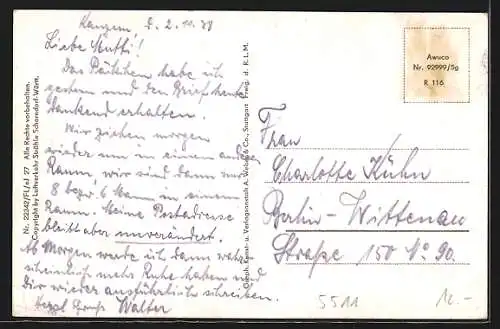 Kangem, d. 2.10.38
Liebe Mutti!
Das Päckchen habe ich
gestern und den Brief heute
dankend erhalten.
Wir ziehen morgen
wieder um in einem andern
Raum, wir sind dann nur
8 bezw. 6 Mann in einem
Raum. Meine Postadresse
bleibt aber unverändert.
Ab Morgen werde ich dann wahr-
scheinlich mehr Ruhe haben und
Dir wieder ausführlich schreiben.
Herzl. Gruß Walter
Nr. 22242/Fl./sl 27 Alle Rechte vorbehalten.
Copyright by Luftverkehr Strähle Schorndorf-Württ.
Graph. Kunst- u. Verlagsanstalt A. Weber & Co., Stuttgart Freig. d. R.L.M.
Awuco
Nr. 92999/5g
R 116
Frau
Charlotte Kühn
Berlin-Wittenau
Straße 150 No 90.
5511
12.-